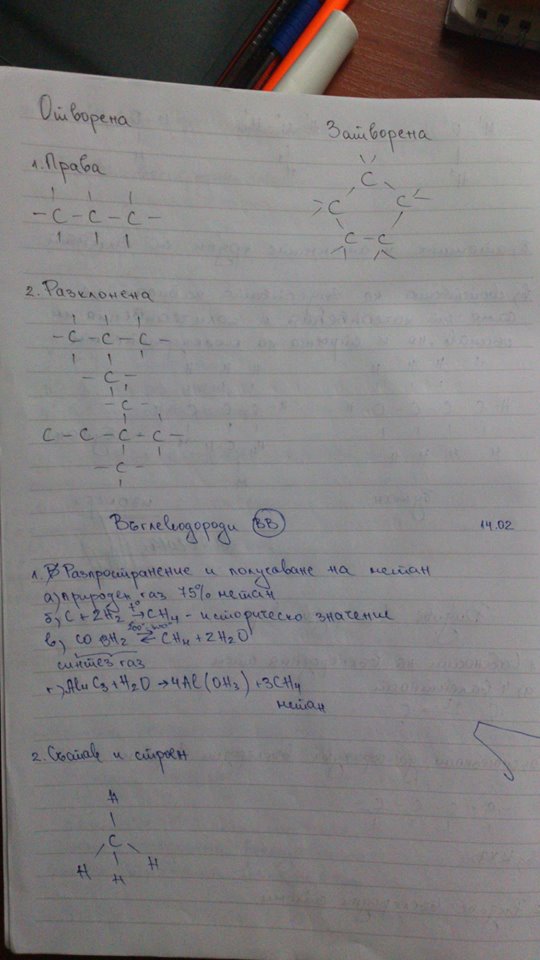 Отворена
Затворена
1. Права
- C - C - C -
C
C C
C - C
2. Разклонена
- C - C - C -
- C -
- C -
C - C - C - C -
- C -
Въглеводороди ВВ 14.02
1. Разпространение и получаване на метан
а) природен газ 75% метан
б) C + 2H2 t° → CH4 - историческо значение
в) CO 3H2 ⇄ CH4 + 2H2O
синтез газ
г) Al4C3 + H2O → 4Al(OH3) + 3CH4
метан
2. Състав и строеж
H
C
H H
H